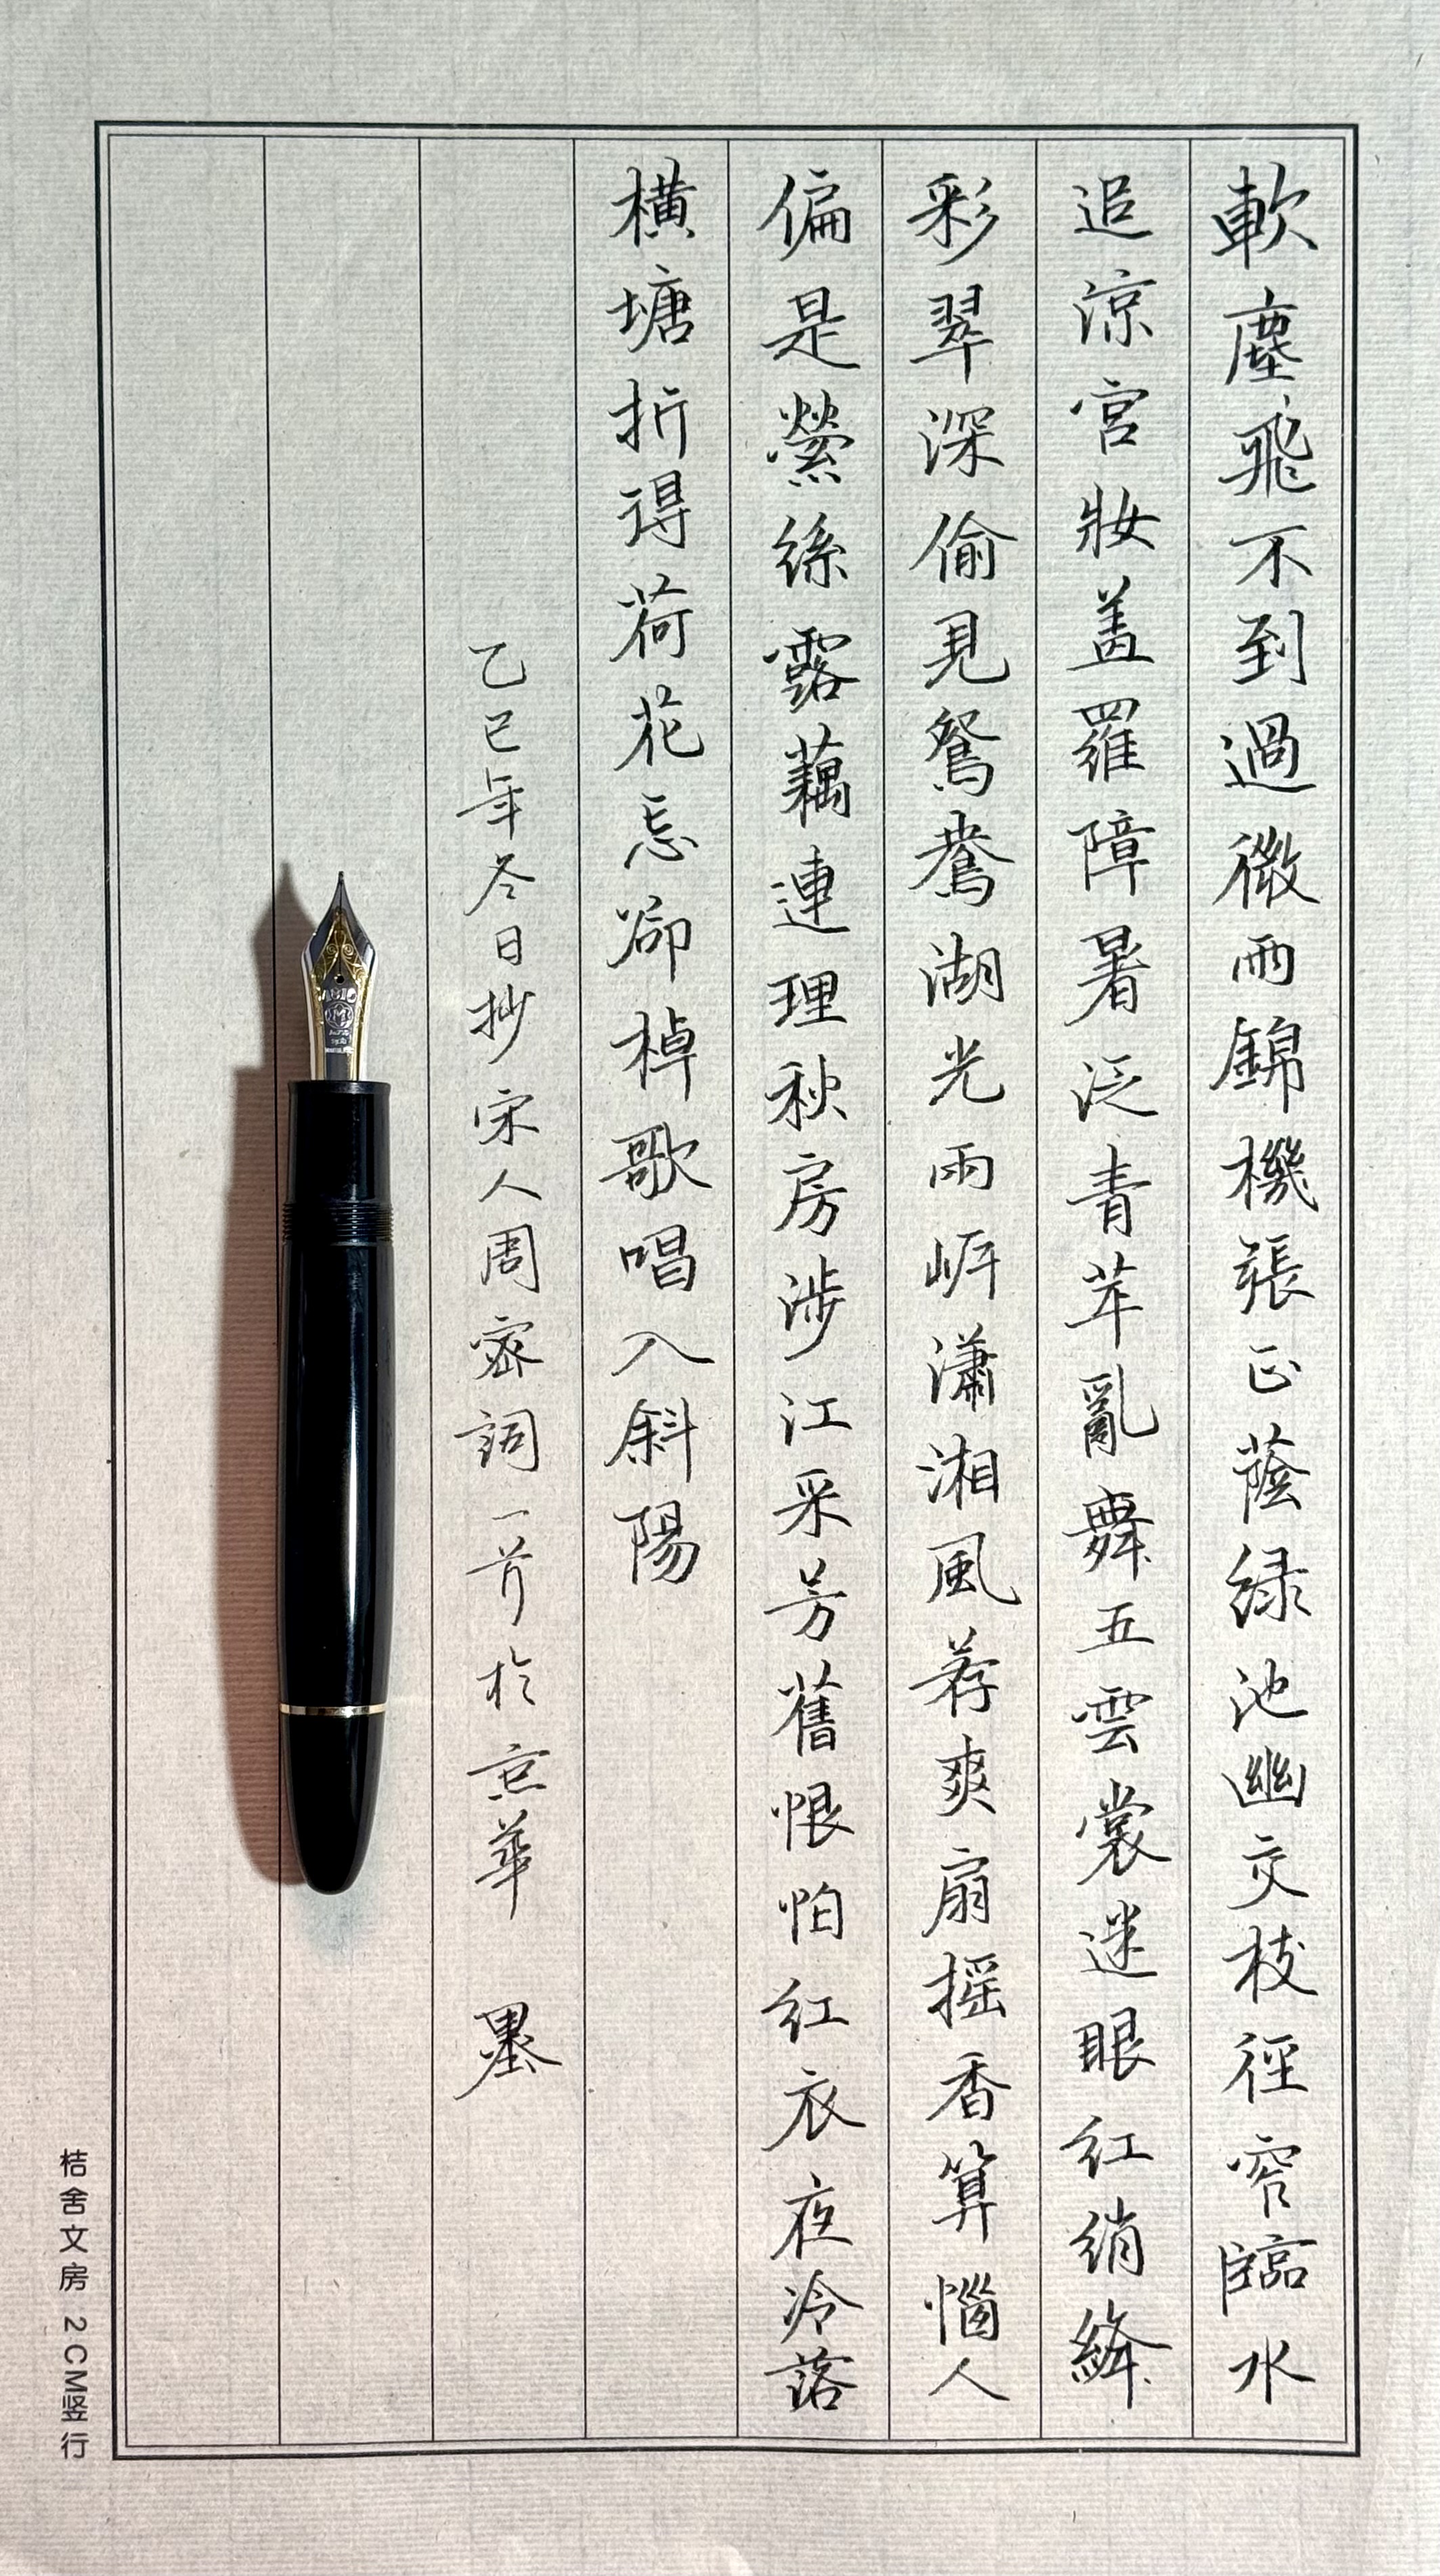 軟塵飛不到過微雨錦機張正蔭緑池幽交枝徑窄臨水
追涼宮妝盖羅障暑泛青苹亂舞五雲裳迷眼紅綃絳
彩翠深偷見鴛鴦湖光雨岍瀟湘風荐爽扇摇香算惱人
偏是縈絲露藕連理秋房涉江采芳舊恨怕紅衣夜冷落
橫塘折得荷花忘卻棹歌唱入斜陽
乙巳年冬日抄宋人周密詞一首於京華 墨
桔舍文房 2CM竖行